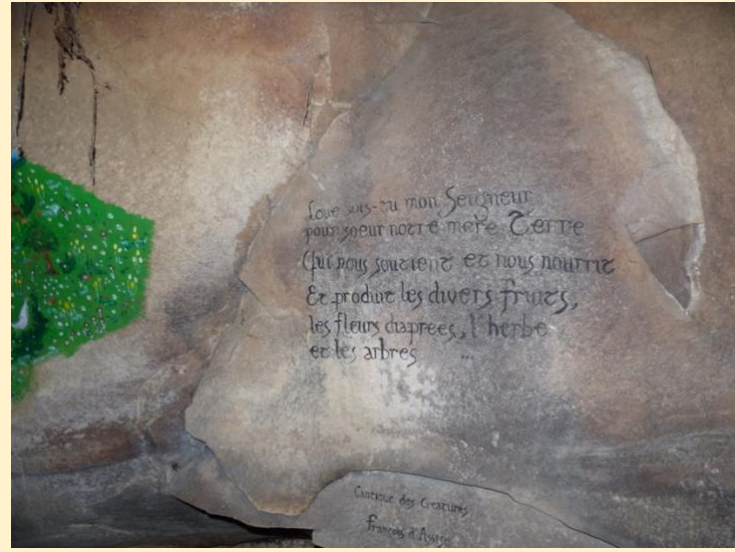 Loué sois-tu mon Seigneur
pour soeur notre mère Terre
Qui nous soutient et nous nourrit
Et produit les divers fruits,
les fleurs diaprees, l'herbe
et les arbres ...
Cantique des Creatures
François d'Assise